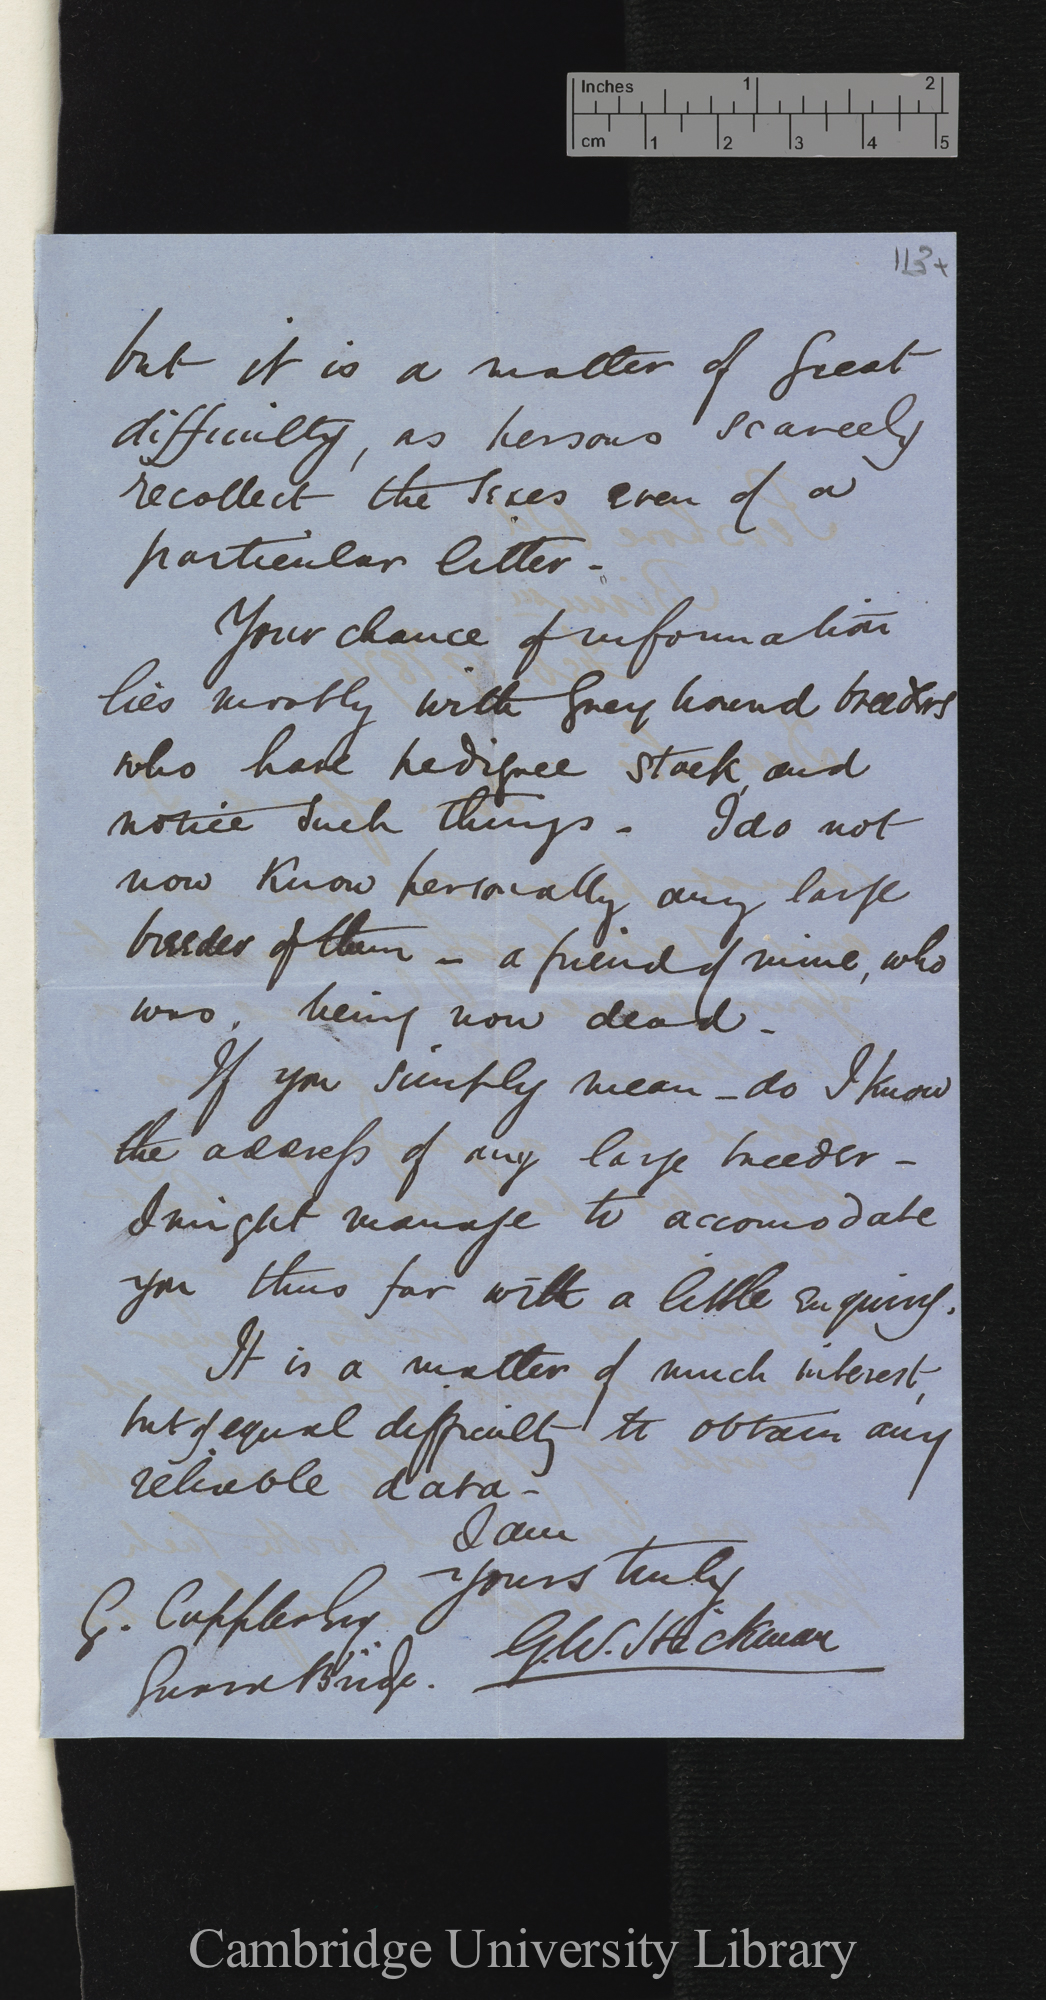 Inches 1 2
cm 1 2 3 4 5
113+
but it is a matter of great
difficulty, as persons scarcely
recollect the sexes even of a
particular litter -
Your chance of information
lies mostly with Greyhound breeders
who have pedigree stock, and
notice such things - I do not
now know personally any large
breeder of them - a friend of mine, who
was, being now dead -
If you simply mean - do I know
the address of any large breeder -
I might manage to accomodate
you thus far with a little enquiry.
It is a matter of much interest,
but of equal difficulty to obtain any
reliable data -
I am
yours truly
G. W. Hickman
G. Cupples Esq
Guard Bridge.
Cambridge University Library